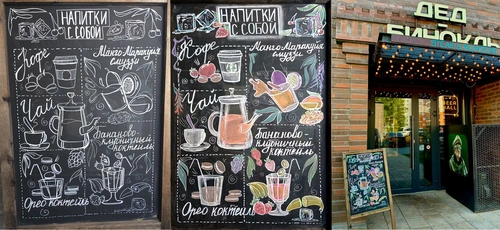 НАПИТКИ
С СОБОЙ
Кофе
Манго-Маракуйя
смузи
Чай
бананово-
клубничный
коктейль
Орео коктейль
НАПИТКИ
С СОБОЙ
Кофе
Манго-Маракуйя
смузи
Чай
бананово-
клубничный
коктейль
Орео коктейль
ДЕД
БИНОКЛЬ
BEER
HALL